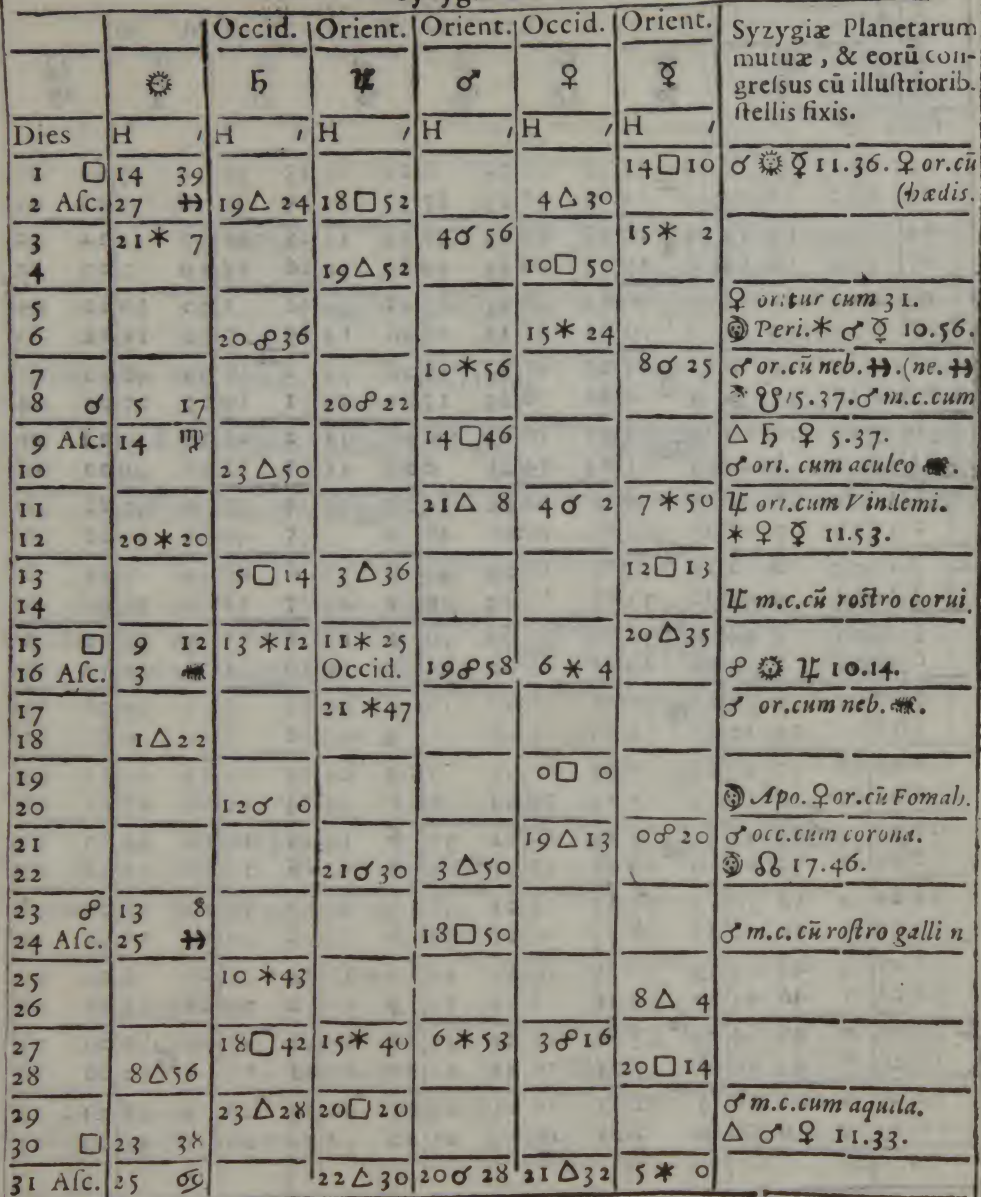 Occid. Orient. Orient. Occid. Orient. Syzygiæ Planetarum
mutuæ, & eorũ con-
☼ ♄ ♃ ♂ ♀ ☿ greſsus cũ illuſtriorib.
ſtellis fixis.
Dies H ′ H ′ H ′ H ′ H ′ H ′
1 □ 14 39 14 □ 10 ☌ ☼ ☿ 11.36. ♀ or.cũ
2 Aſc. 27 ♓ 19 △ 24 18 □ 52 4 △ 30 (hædis.
3 21 ⚹ 7 4 ☌ 56 15 ⚹ 2
4 19 △ 52 10 □ 50
5 ♀ oritur cum 31.
6 20 ☍ 36 15 ⚹ 24 ☽ Peri. ⚹ ♂ ☿ 10.56.
7 10 ⚹ 56 8 ☌ 25 ♂ or.cũ neb. ♓. (ne. ♓
8 ☌ 5 17 20 ☍ 22 ☋ 15.37. ♂ m.c.cum
9 Aſc. 14 ♍ 14 □ 46 △ ♄ ♀ 5.37.
10 23 △ 50 ♂ ori. cum aculeo ♏.
11 21 △ 8 4 ☌ 2 7 ⚹ 50 ♃ ori.cum Vindemi.
12 20 ⚹ 20 ⚹ ♀ ☿ 11.53.
13 5 □ 14 3 △ 36 12 □ 13
14 ♃ m.c.cũ roſtro corui.
15 □ 9 12 13 ⚹ 12 11 ⚹ 25 20 △ 35
16 Aſc. 3 ♏ Occid. 19 ☍ 58 6 ⚹ 4 ☍ ☼ ♃ 10.14.
17 21 ⚹ 47 ♂ or.cum neb. ♏.
18 1 △ 22
19 0 □ 0
20 12 ☌ 0 ☽ Apo. ♀ or.cũ Fomah.
21 19 △ 13 0 ☍ 20 ♂ occ.cum corona.
22 21 ☌ 30 3 △ 50 ☽ ☊ 17.46.
23 ☍ 13 8
24 Aſc. 25 ♓ 18 □ 50 ♂ m.c. cũ roſtro galli n
25 10 ⚹ 43
26 8 △ 4
27 18 □ 42 15 ⚹ 40 6 ⚹ 53 3 ☍ 16
28 8 △ 56 20 □ 14
29 23 △ 28 20 □ 20 ♂ m.c.cum aquila.
30 □ 23 38 △ ♂ ♀ 11.33.
31 Aſc. 25 ♋ 22 △ 30 20 ☌ 28 21 △ 32 5 ⚹ 0